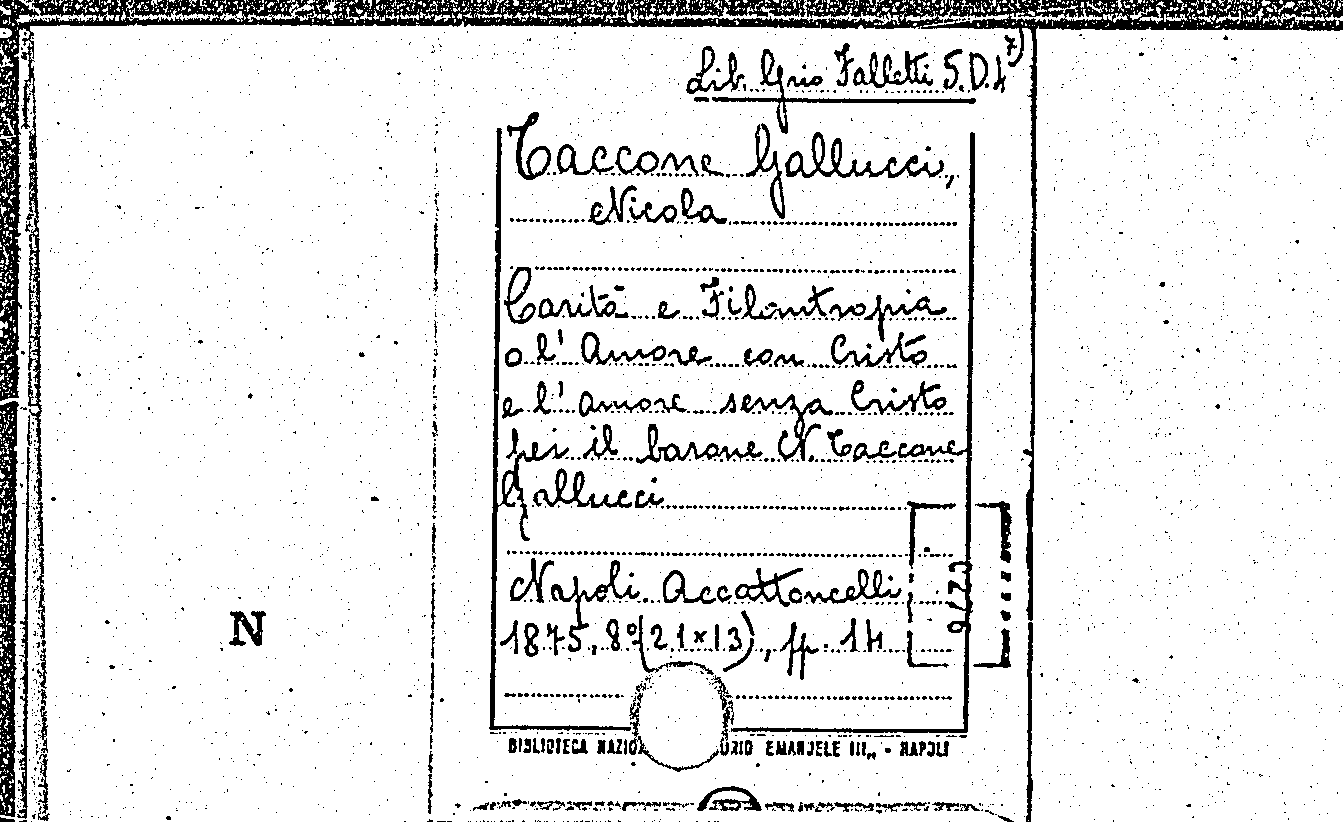 Lib. Grio Falletti 5.D.4 7)
Taccone Gallucci,
Nicola
Carità e Filantropia
o l'Amore con Cristo
e l'amore senza Cristo
pei il barone N. Taccone
Gallucci
Napoli. Accattoncelli,
1875, 8º (21×13), pp. 14
N
BIBLIOTECA NAZIO ORIO EMANUELE III„ - NAPOLI